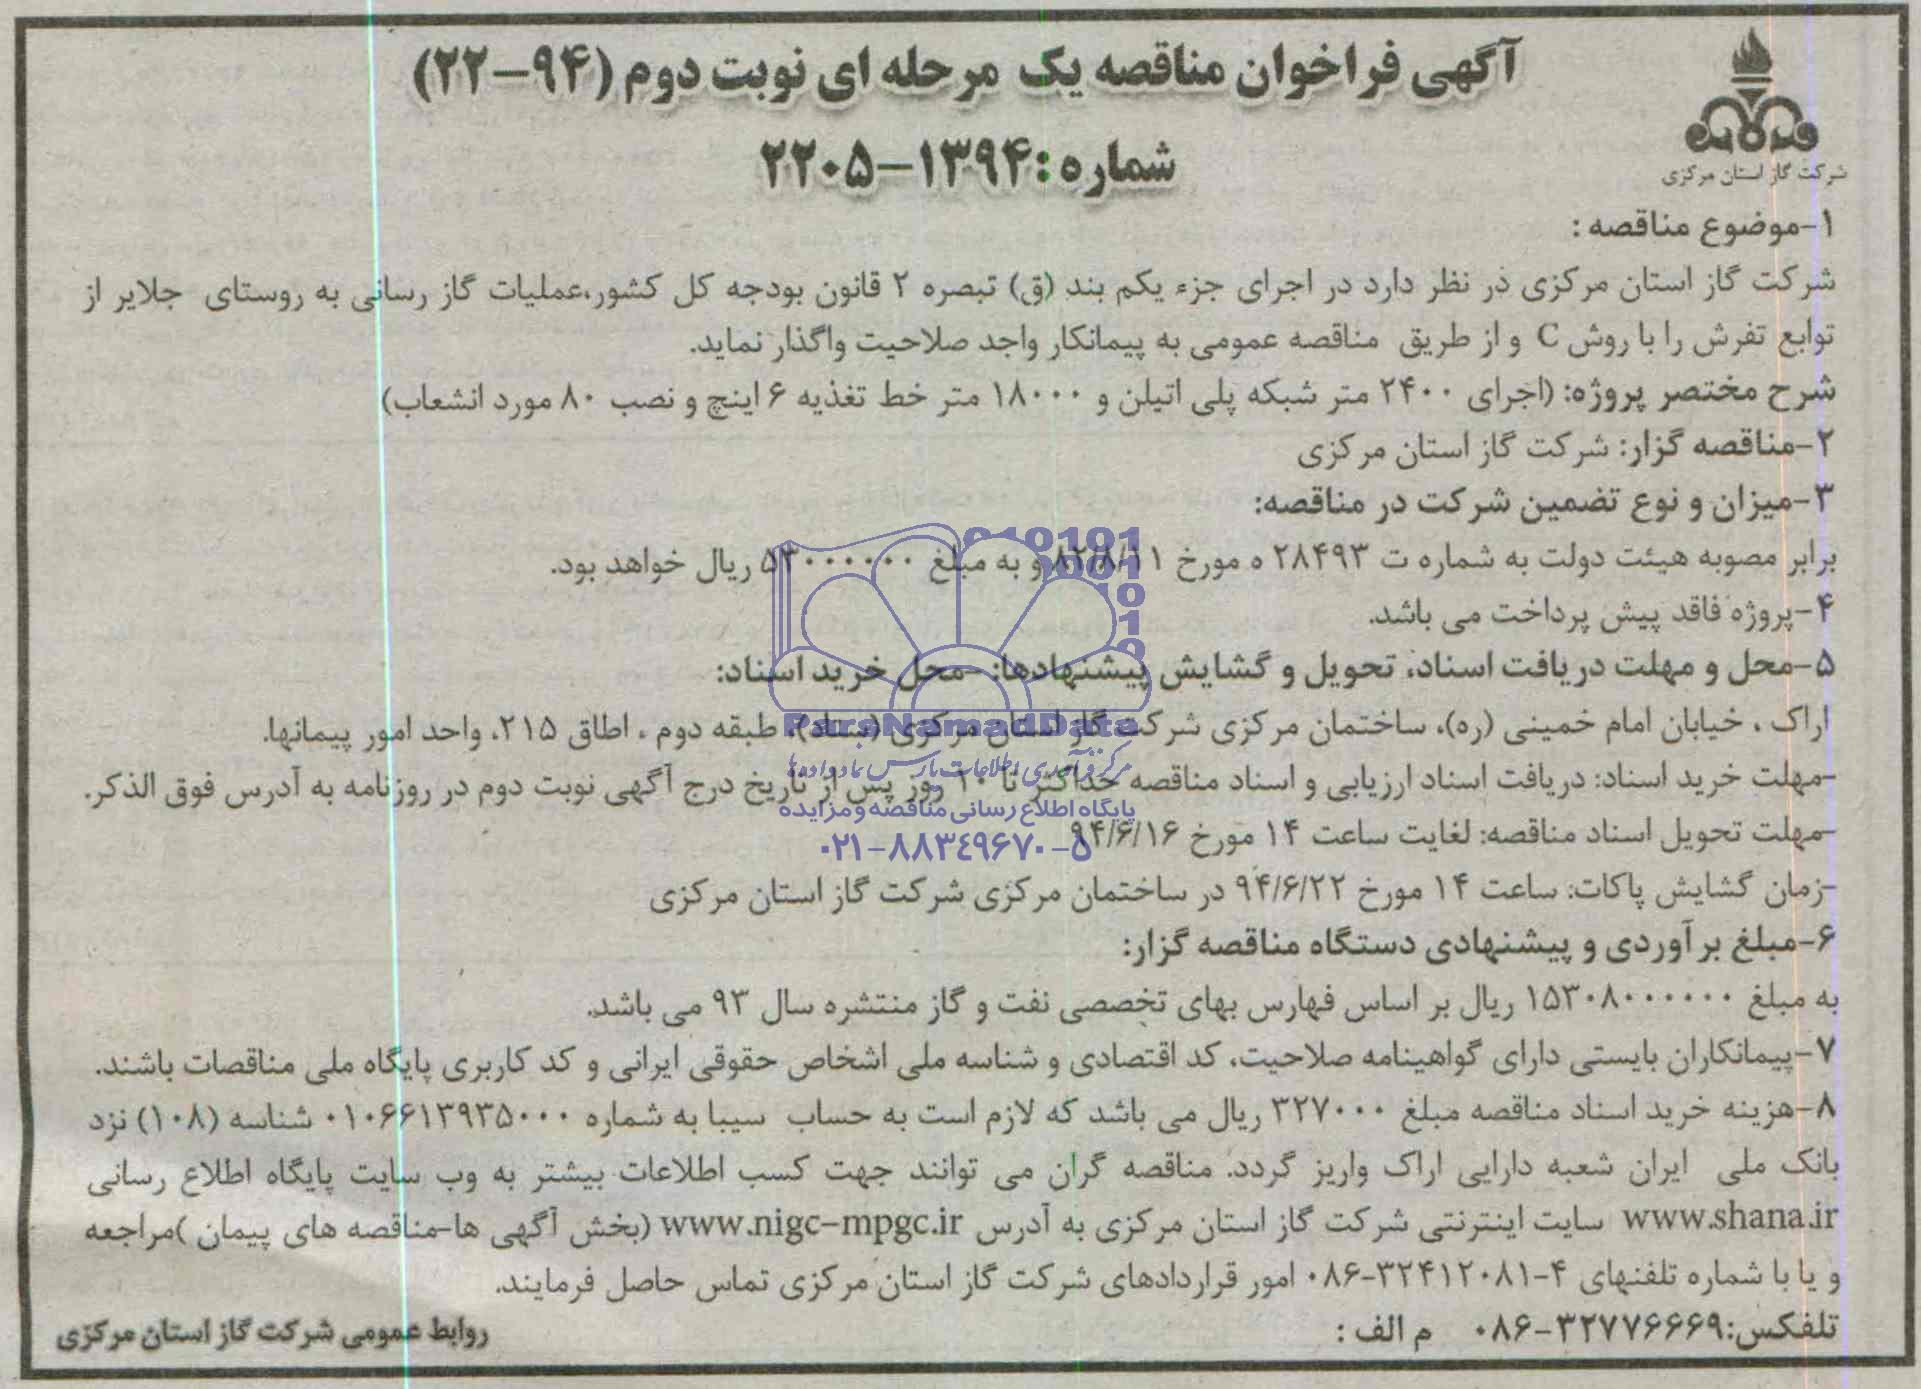 آگهی فراخوان مناقصه یک مرحله ای نوبت دوم (۹۴-۲۲)
شماره: ۱۳۹۴-۲۲۰۵
شرکت گاز استان مرکزی
۱-موضوع مناقصه :
شرکت گاز استان مرکزی در نظر دارد در اجرای جزء یکم بند (ق) تبصره ۲ قانون بودجه کل کشور،عملیات گاز رسانی به روستای جلایر از
توابع تفرش را با روش C و از طریق مناقصه عمومی به پیمانکار واجد صلاحیت واگذار نماید.
شرح مختصر پروژه: (اجرای ۲۴۰۰ متر شبکه پلی اتیلن و ۱۸۰۰۰ متر خط تغذیه ۶ اینچ و نصب ۸۰ مورد انشعاب)
۲-مناقصه گزار: شرکت گاز استان مرکزی
۳-میزان و نوع تضمین شرکت در مناقصه:
برابر مصوبه هیئت دولت به شماره ت ۲۸۴۹۳ ه مورخ ۸۲/۸/۱۱ و به مبلغ ۵۳۰۰۰۰۰۰۰ ریال خواهد بود.
۴-پروژه فاقد پیش پرداخت می باشد.
۵-محل و مهلت دریافت اسناد، تحویل و گشایش پیشنهادها: -محل خرید اسناد:
اراک ، خیابان امام خمینی (ره)، ساختمان مرکزی شرکت گاز استان مرکزی (ستاد)، طبقه دوم ، اطاق ۲۱۵، واحد امور پیمانها.
-مهلت خرید اسناد: دریافت اسناد ارزیابی و اسناد مناقصه حداکثر تا ۱۰ روز پس از تاریخ درج آگهی نوبت دوم در روزنامه به آدرس فوق الذکر.
-مهلت تحویل اسناد مناقصه: لغایت ساعت ۱۴ مورخ ۹۴/۶/۱۶
-زمان گشایش پاکات: ساعت ۱۴ مورخ ۹۴/۶/۲۲ در ساختمان مرکزی شرکت گاز استان مرکزی
۶-مبلغ برآوردی و پیشنهادی دستگاه مناقصه گزار:
به مبلغ ۱۵۳۰۸۰۰۰۰۰۰ ریال بر اساس فهارس بهای تخصصی نفت و گاز منتشره سال ۹۳ می باشد.
۷-پیمانکاران بایستی دارای گواهینامه صلاحیت، کد اقتصادی و شناسه ملی اشخاص حقوقی ایرانی و کد کاربری پایگاه ملی مناقصات باشند.
۸-هزینه خرید اسناد مناقصه مبلغ ۳۲۷۰۰۰ ریال می باشد که لازم است به حساب سیبا به شماره ۰۱۰۶۶۱۳۹۳۵۰۰۰ شناسه (۱۰۸) نزد
بانک ملی ایران شعبه دارایی اراک واریز گردد. مناقصه گران می توانند جهت کسب اطلاعات بیشتر به وب سایت پایگاه اطلاع رسانی
www.shana.ir سایت اینترنتی شرکت گاز استان مرکزی به آدرس www.nigc-mpgc.ir (بخش آگهی ها-مناقصه های پیمان )مراجعه
و یا با شماره تلفنهای ۴-۳۲۴۱۲۰۸۱-۰۸۶ امور قراردادهای شرکت گاز استان مرکزی تماس حاصل فرمایند.
تلفکس:۳۲۷۷۶۶۶۹-۰۸۶ م الف :
روابط عمومی شرکت گاز استان مرکزی
ParsNamadData
مرکز فرآمدی اطلاعات پارس نماد داده ها
پایگاه اطلاع رسانی مناقصه و مزایده
۰۲۱-۸۸۳۴۹۶۷۰-۵